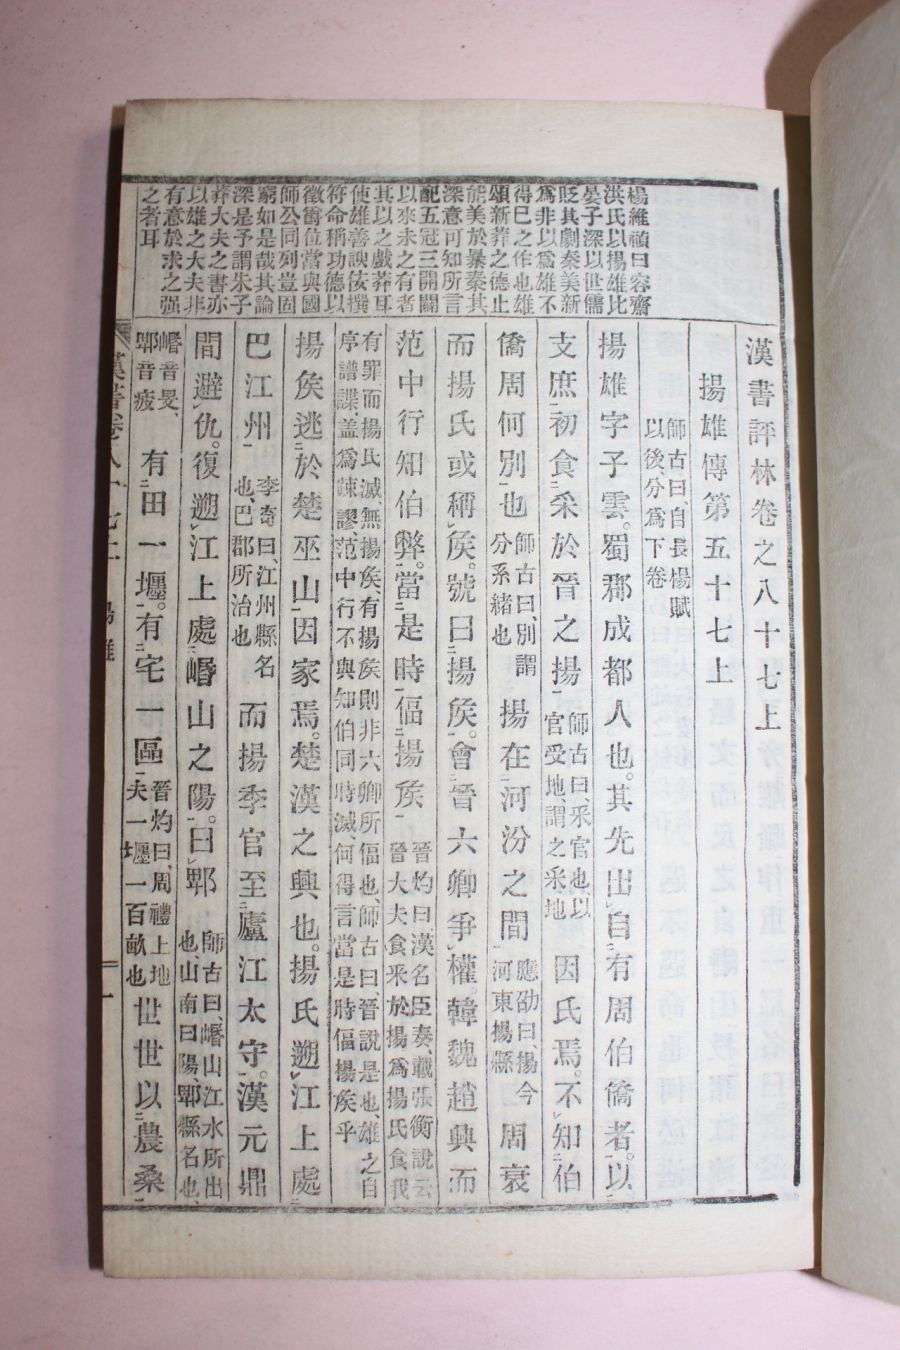 楊維禎曰容齋
洪氏以楊雄比
晏子深以世儒
貶其劇秦美新
為非以為雄不
得已之作也雄
頌新莽之德止
能美於暴秦其
深意可知所言
配五冠三開闢
以來未之有者
其以之戲莽耳
使雄善諛佞撰
符命稱功德以
徼爵位當與國
師公同列豈固
窮如是哉其論
深是予謂朱子
莽大夫之書亦
以雄之大夫非
有意於求之强
之者耳
漢書評林卷之八十七上
揚雄傳第五十七上
師古曰自長楊賦
以後分為下卷
揚雄字子雲。蜀郡成都人也。其先出自有周伯僑者。以
支庶初食采於晉之揚師古曰采官也以官受地謂之采地因氏焉。不知伯
僑周何別也師古曰別謂分系緒也揚在河汾之間應劭曰揚今河東揚縣周衰
而揚氏或稱侯。號曰揚侯。會晉六卿爭權。韓魏趙興而
范中行知伯弊。當是時偪揚侯晉灼曰漢名臣奏載張衡說云晉大夫食采於揚為揚氏食我
有罪而揚氏滅無揚侯有揚侯則非六卿所偪也師古曰晉說是也雄之自
序譜諜盖為疎謬范中行不與知伯同時滅何得言當是時偪揚侯乎
揚侯逃於楚巫山因家焉。楚漢之興也。揚氏遡江上處
巴江州李奇曰江州縣名也巴郡所治也而揚季官至廬江太守。漢元鼎
間避仇。復遡江上處崏山之陽。曰郫師古曰崏山江水所出也山南曰陽郫縣名也
崏音旻、郫音疲有田一㙻。有宅一區晉灼曰周禮上地夫一㙻一百畝也世世以農桑
漢書卷八十七上 揚雄 一